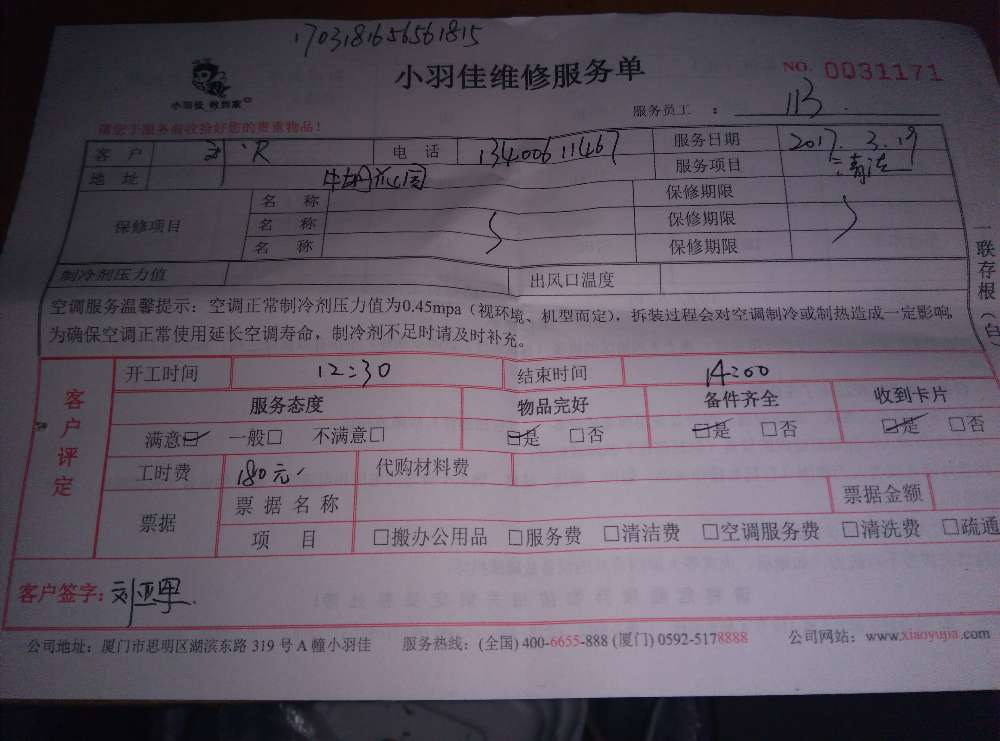 1703181656561815
小羽佳维修服务单
NO. 0031171
小羽佳 帮到家
服务员工 : 113
请您于服务前收拾好您的贵重物品!
客 户 电 话 13400611467 服务日期 2017. 3. 19
地 址 服务项目 清洁
保修项目 名 称 保修期限
名 称 保修期限
名 称 保修期限
制冷剂压力值 出风口温度
空调服务温馨提示：空调正常制冷剂压力值为0.45mpa（视环境、机型而定），拆装过程会对空调制冷或制热造成一定影响，
为确保空调正常使用延长空调寿命，制冷剂不足时请及时补充。
一联存根（白
客户评定
开工时间 12:30 结束时间 14:00
服务态度 物品完好 备件齐全 收到卡片
满意☑ 一般□ 不满意□ ☑是 □否 ☑是 □否 ☑是 □否
工时费 180元 代购材料费
票据 票 据 名 称 票据金额
项 目 □搬办公用品 □服务费 □清洁费 □空调服务费 □清洗费 □疏通
客户签字: 刘亚军
公司地址：厦门市思明区湖滨东路 319 号 A 幢小羽佳 服务热线：(全国) 400-6655-888 (厦门) 0592-5178888 公司网站：www.xiaoyujia.com